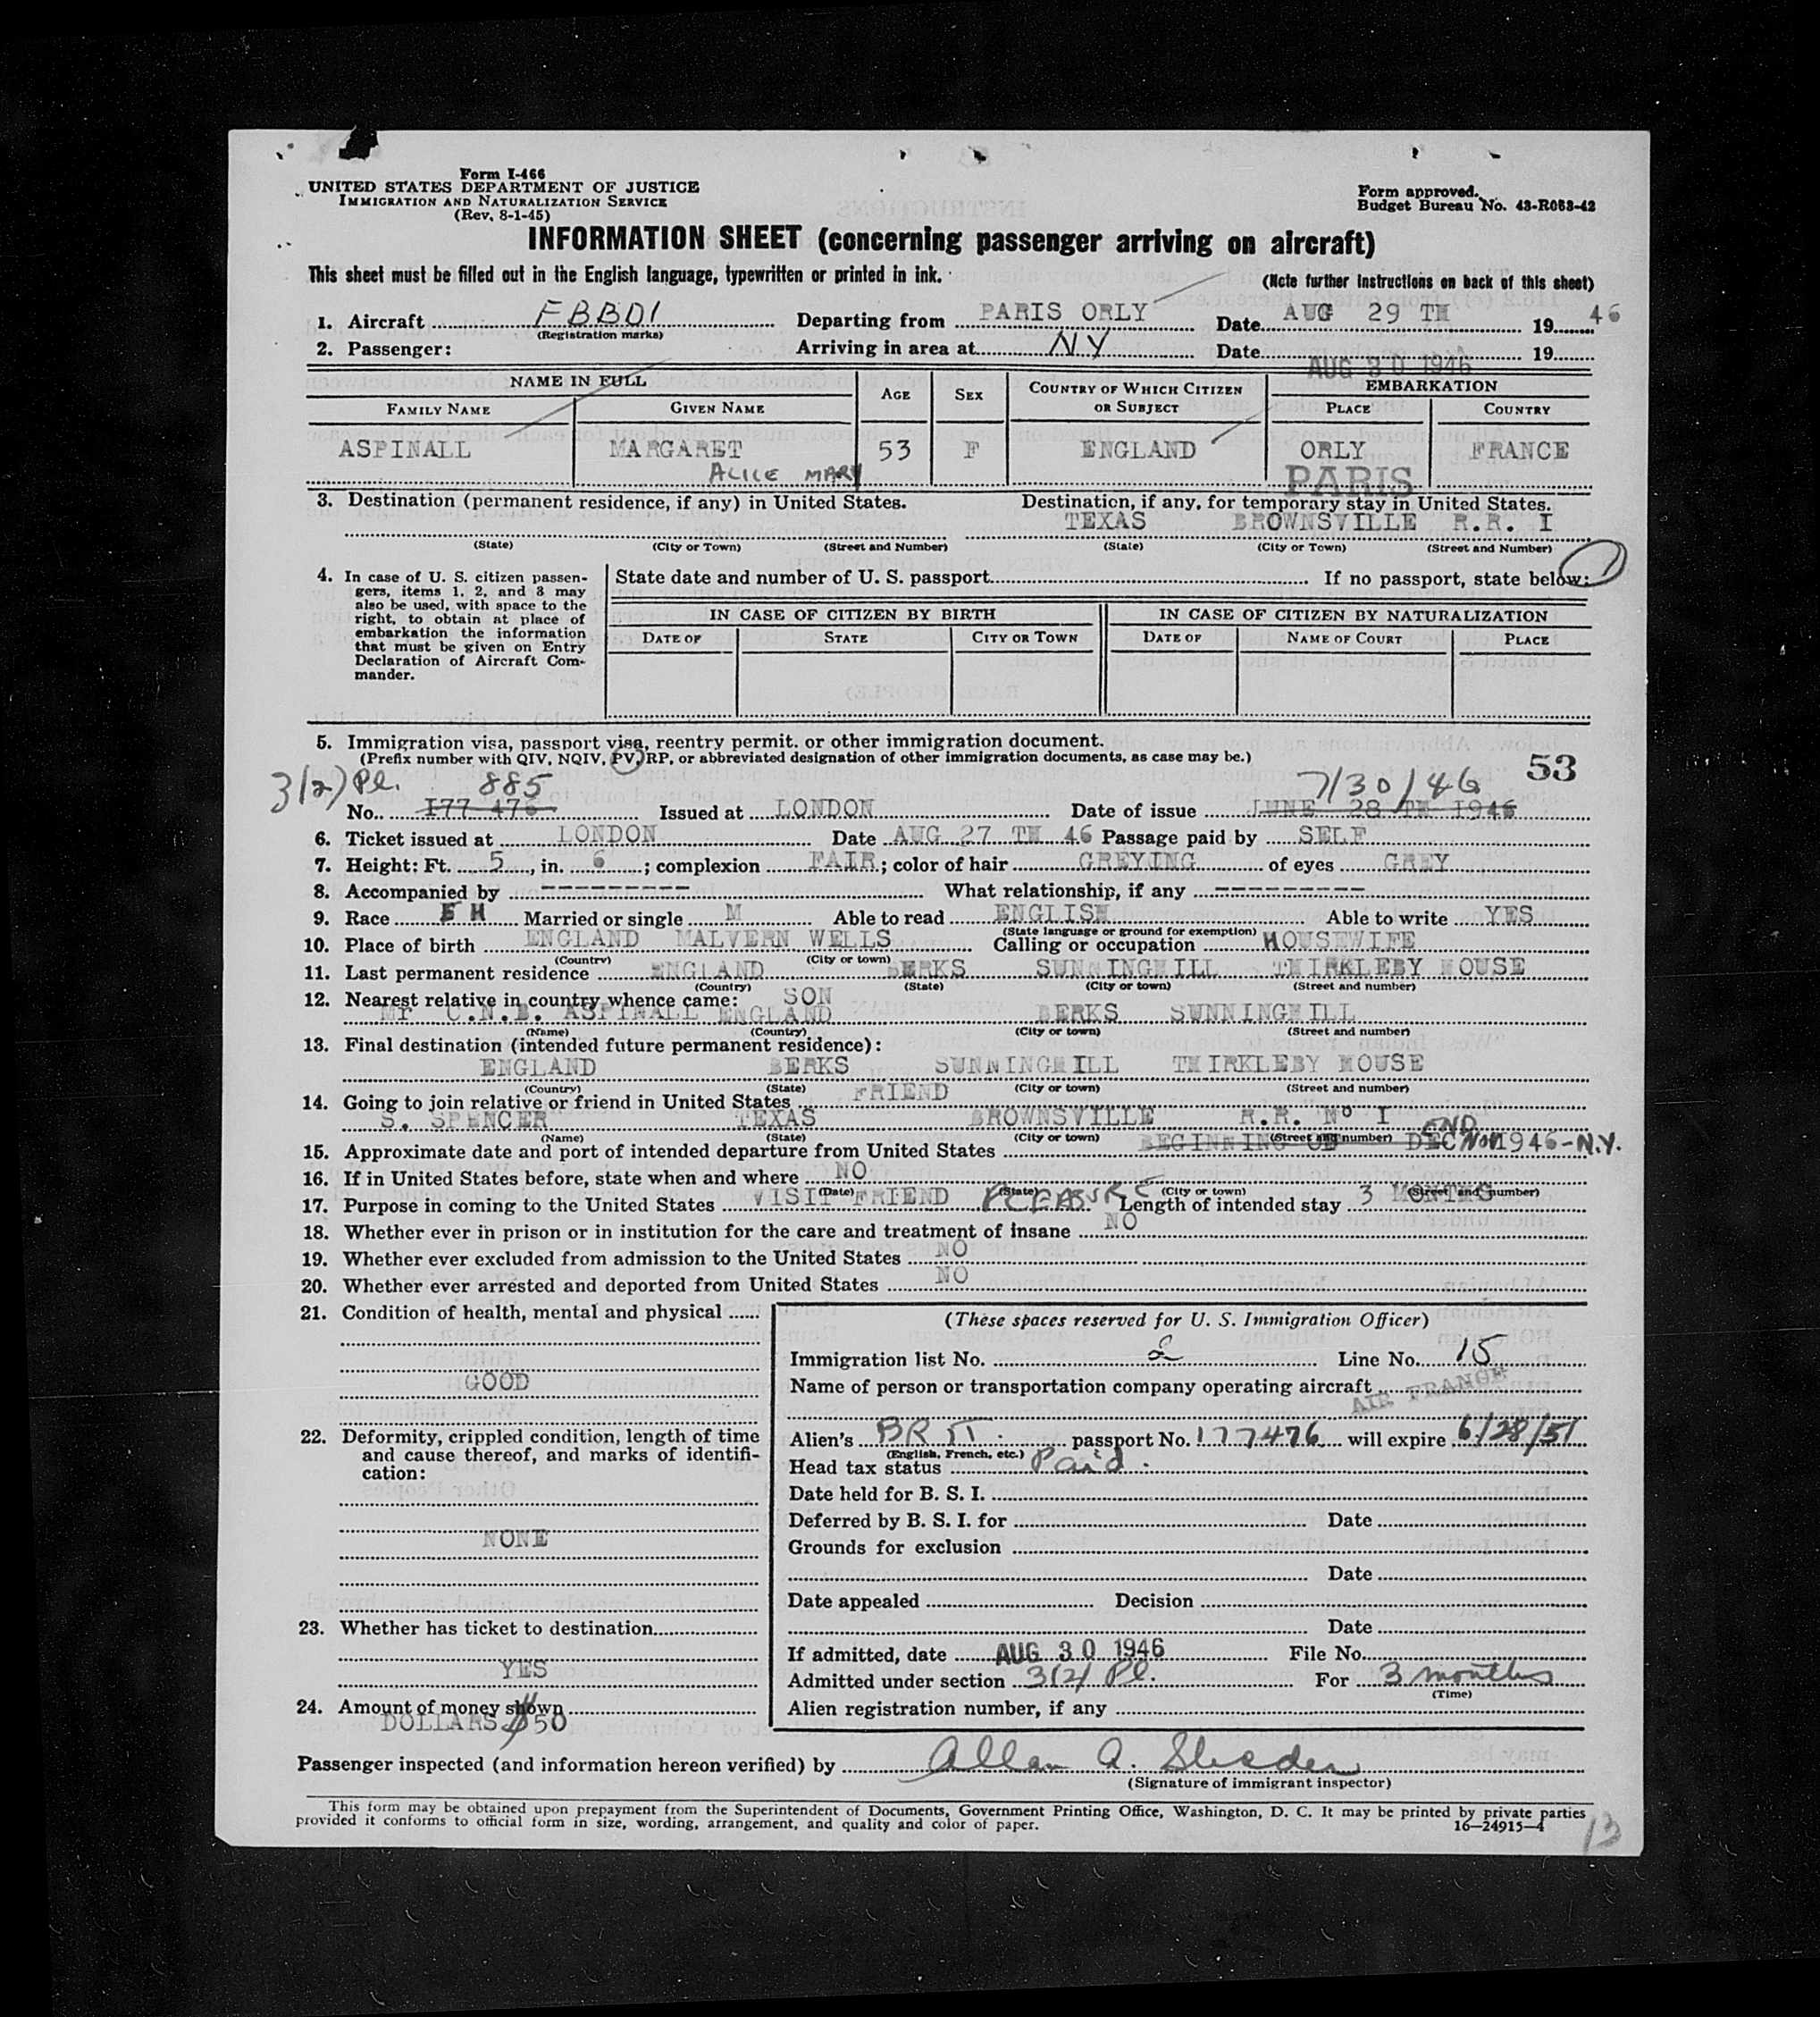 Form I-466
UNITED STATES DEPARTMENT OF JUSTICE
IMMIGRATION AND NATURALIZATION SERVICE
(Rev. 8-1-45)
Form approved.
Budget Bureau No. 43-R053-42
INFORMATION SHEET (concerning passenger arriving on aircraft)
This sheet must be filled out in the English language, typewritten or printed in ink.
(Note further instructions on back of this sheet)
1. Aircraft FBBDI Departing from PARIS ORLY Date AUG 29 TH 1946
(Registration marks)
2. Passenger: Arriving in area at NY Date AUG 30 1946 19
NAME IN FULL AGE SEX COUNTRY OF WHICH CITIZEN OR SUBJECT EMBARKATION
FAMILY NAME GIVEN NAME PLACE COUNTRY
ASPINALL MARGARET 53 F ENGLAND ORLY FRANCE
ALICE MARY PARIS
3. Destination (permanent residence, if any) in United States. Destination, if any, for temporary stay in United States.
TEXAS BROWNSVILLE R.R. I
(State) (City or Town) (Street and Number) (State) (City or Town) (Street and Number)
4. In case of U. S. citizen passengers, items 1, 2, and 3 may also be used, with space to the right, to obtain at place of embarkation the information that must be given on Entry Declaration of Aircraft Commander.
State date and number of U. S. passport If no passport, state below:
IN CASE OF CITIZEN BY BIRTH IN CASE OF CITIZEN BY NATURALIZATION
DATE OF STATE CITY OR TOWN DATE OF NAME OF COURT PLACE
5. Immigration visa, passport visa, reentry permit, or other immigration document.
(Prefix number with QIV, NQIV, PV, RP, or abbreviated designation of other immigration documents, as case may be.)
53
3(2) Pl. 885 7/30/46
No. I77 476 Issued at LONDON Date of issue JUNE 28 TH 1946
6. Ticket issued at LONDON Date AUG 27 TH 46 Passage paid by SELF
7. Height: Ft. 5, in. 6; complexion FAIR; color of hair GREYING of eyes GREY
8. Accompanied by --------- What relationship, if any ---------
9. Race Married or single M Able to read ENGLISH Able to write YES
(State language or ground for exemption)
10. Place of birth ENGLAND MALVERN WELLS Calling or occupation HOUSEWIFE
(Country) (City or town)
11. Last permanent residence ENGLAND BERKS SUNNINGHILL THIRKLEBY HOUSE
(Country) (State) (City or town) (Street and number)
12. Nearest relative in country whence came: SON
Mr C.N.B. ASPINALL ENGLAND BERKS SUNNINGHILL
(Name) (Country) (City or town) (Street and number)
13. Final destination (intended future permanent residence):
ENGLAND BERKS SUNNINGHILL THIRKLEBY HOUSE
(Country) (State) (City or town) (Street and number)
14. Going to join relative or friend in United States FRIEND
S. SPENCER TEXAS BROWNSVILLE R.R. No I
(Name) (State) (City or town) (Street and number)
15. Approximate date and port of intended departure from United States BEGINNING OF DEC END NOV 1946 - N.Y.
16. If in United States before, state when and where NO
(Date) (State) (City or town) (Street and number)
17. Purpose in coming to the United States VISIT FRIEND PLEASURE Length of intended stay 3 MONTHS
18. Whether ever in prison or in institution for the care and treatment of insane NO
19. Whether ever excluded from admission to the United States NO
20. Whether ever arrested and deported from United States NO
21. Condition of health, mental and physical
GOOD
22. Deformity, crippled condition, length of time and cause thereof, and marks of identification:
NONE
23. Whether has ticket to destination
YES
24. Amount of money shown
DOLLARS $50
(These spaces reserved for U. S. Immigration Officer)
Immigration list No. 2 Line No. 15
Name of person or transportation company operating aircraft
AIR FRANCE
Alien's BRIT. passport No. 177476 will expire 6/28/51
(English, French, etc.)
Head tax status Paid.
Date held for B. S. I.
Deferred by B. S. I. for Date
Grounds for exclusion
Date
Date appealed Decision
Date
If admitted, date AUG 30 1946 File No.
Admitted under section 3(2) Pl. For 3 months
(Time)
Alien registration number, if any
Passenger inspected (and information hereon verified) by Allan A.
(Signature of immigrant inspector)
This form may be obtained upon prepayment from the Superintendent of Documents, Government Printing Office, Washington, D. C. It may be printed by private parties
provided it conforms to official form in size, wording, arrangement, and quality and color of paper.
16—24915-4
13